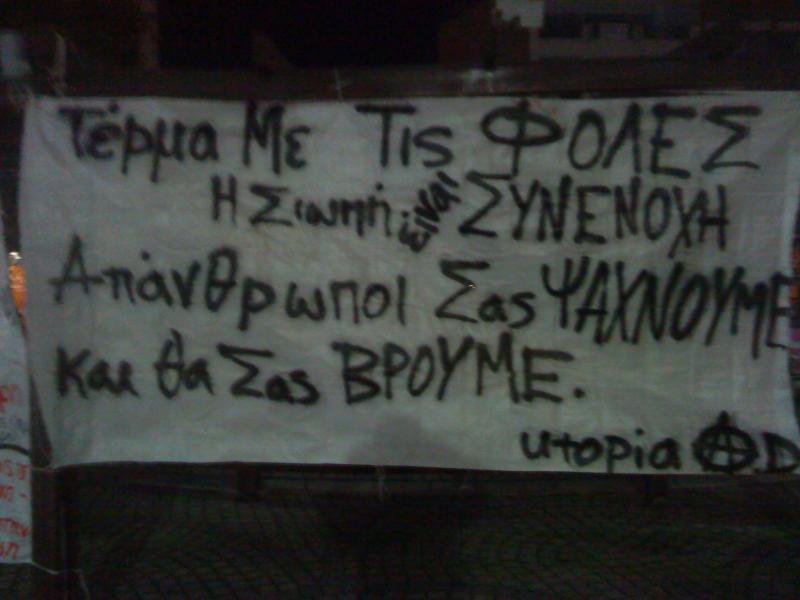 Τέρμα Με Τις ΦΟΛΕΣ
Η Σιωπή είναι ΣΥΝΕΝΟΧΗ
Απάνθρωποι Σας ΨΑΧΝΟΥΜΕ
και θα Σας ΒΡΟΥΜΕ.
utopia A.D